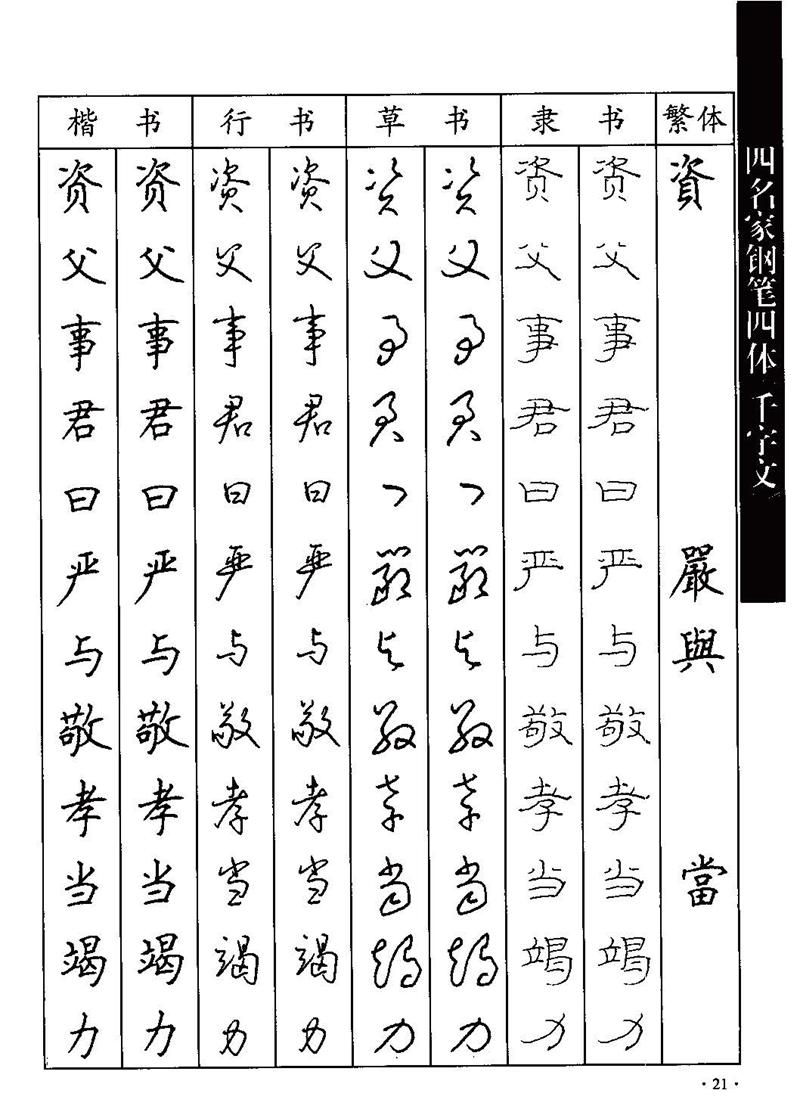 楷书 行书 草书 隶书 繁体
资 资 资 资 资 资 资 资 資
父 父 父 父 父 父 父 父
事 事 事 事 事 事 事 事
君 君 君 君 君 君 君 君
曰 曰 曰 曰 曰 曰 曰 曰
严 严 严 严 嚴 嚴 严 严 嚴
与 与 与 与 与 与 与 与 與
敬 敬 敬 敬 敬 敬 敬 敬
孝 孝 孝 孝 孝 孝 孝 孝
当 当 当 当 当 当 当 当 當
竭 竭 竭 竭 竭 竭 竭 竭
力 力 力 力 力 力 力 力
四名家钢笔四体千字文
·21·